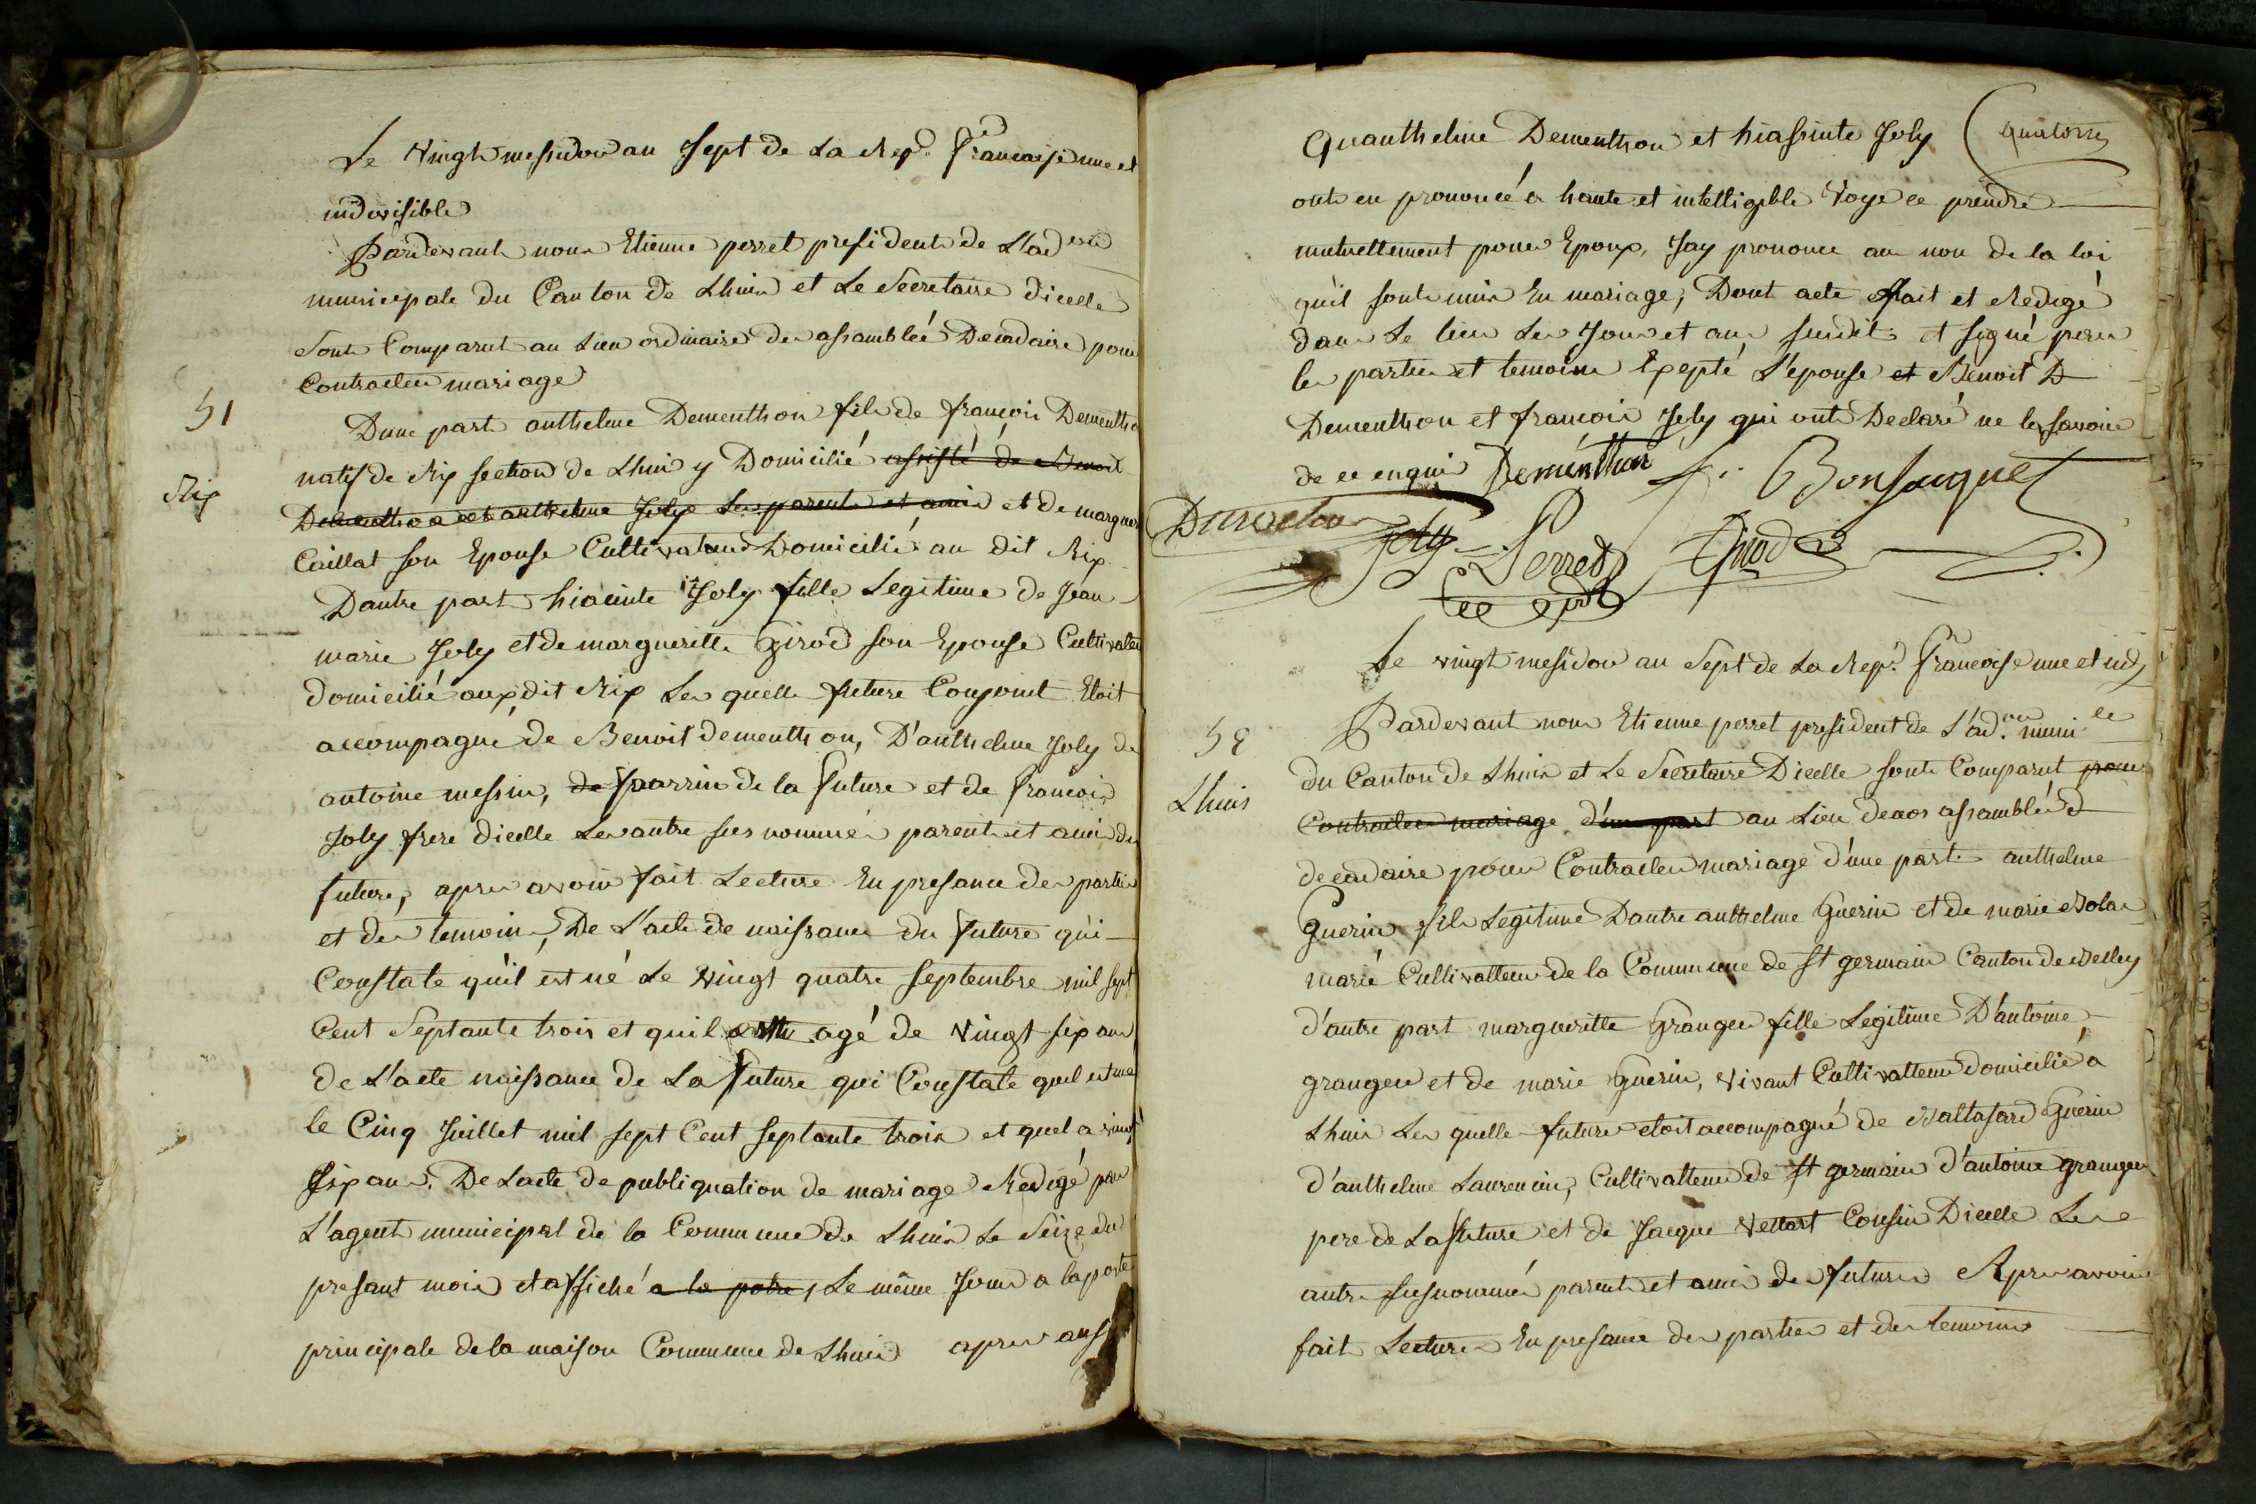 Le vingt messidor an sept de la Rep.e francaise une et
indivisible
Pardevant nous Etienne perret president de L'ad.on
municipale du Canton de Lhuis et Le Secretaire dicelle
sont Comparut au Lieu ordinaire des assamblée Decadaire pour
Contracter mariage
51
Dune part anthelme Dementhon fils de françois Dementhon
natif de Rix section de Lhuis y Domicilié assisté de Benoit
Rix
Dementhon et anthelme Joly Les parents et amis et de margueri
Caillat son Epouse Cultivateurs Domicilié au dit Rix
Dautre part hiacinte Joly fille Legitime de Jean
marie Joly et de margueritte Girod son Epouse Cultivateu
domicilié aux dit Rix Les quelle future Conjoint Etoit
accompagné de Benoit dementhon, D'anthelme Joly de
antoine messin, de parrin de la future et de françois
Joly frere dicelle Les autre sus nommés parents et ami des
future, apres avoir fait Lecture En presance des parties
et des temoins, De L'acte de naissance du future qui
Constate qu'il est né Le vingt quatre septembre mil sept
Cent Septante trois et quil agé de vingt six ans
de L'acte naissance de La future qui Constate quel est né
le Cinq Juillet mil sept Cent septante trois et quel a vingt
six ans. De Lacte de publiquation de mariage Redigé par
L'agent municipal de la Commune de Lhuis Le Seize du
presant mois et affiché a la potre, Le même Jour a la porte
principale de la maison Commune de Lhuis apres aussi
Quanthelme Dementhon et hiassinte Joly
quatorze
ont eu prononcé a haute et intelligible Voye ce prendre
mutuettement pour Epoux, Jay prononce au non de la loi
qu'il sont unis En mariage, Dont acte fait et Redigé
dans Le lieu Les Jour et an susdit et signé par
les parties et temoins Exepté L'épouse et Benoit D
Dementhon et françois Joly qui ont Declaré ne le savoire
de ce enquis Dementhon Bonsuquet
Joly Perret Girod
Le vingt mesidor an Sept de La Rep.e françoise une et ind
52
Pardevant nous Etienne perret president de L'ad.on muni le
du Canton de Lhuis et Le Secretaire Dicelle sont Comparut pour
Lhuis
Contracter mariage d'une part au Lieu de nos assamblée d
decadaire pour Contracter mariage d'une part anthelme
Guerin fils Legitime Dautre anthelme Guerin et de marie
marié Cultivatteur de la Commune de St germain Canton de Belley
d'autre part margueritte Granger fille Legitime D'antoine
granger et de marie Guerin, vivant Cultivatteur domicilié a
Lhuis Les quelle future etoit accompagné de Baltasard Guerin
d'anthelme Laurencin, Cultivatteur de St germain d'antoine granger
pere de La future et de Jacque Vettart Cousin Dicelle Les
autre susnommés parents et amis des futures Apres avoir
fait Lecture En presance des parties et des temoins